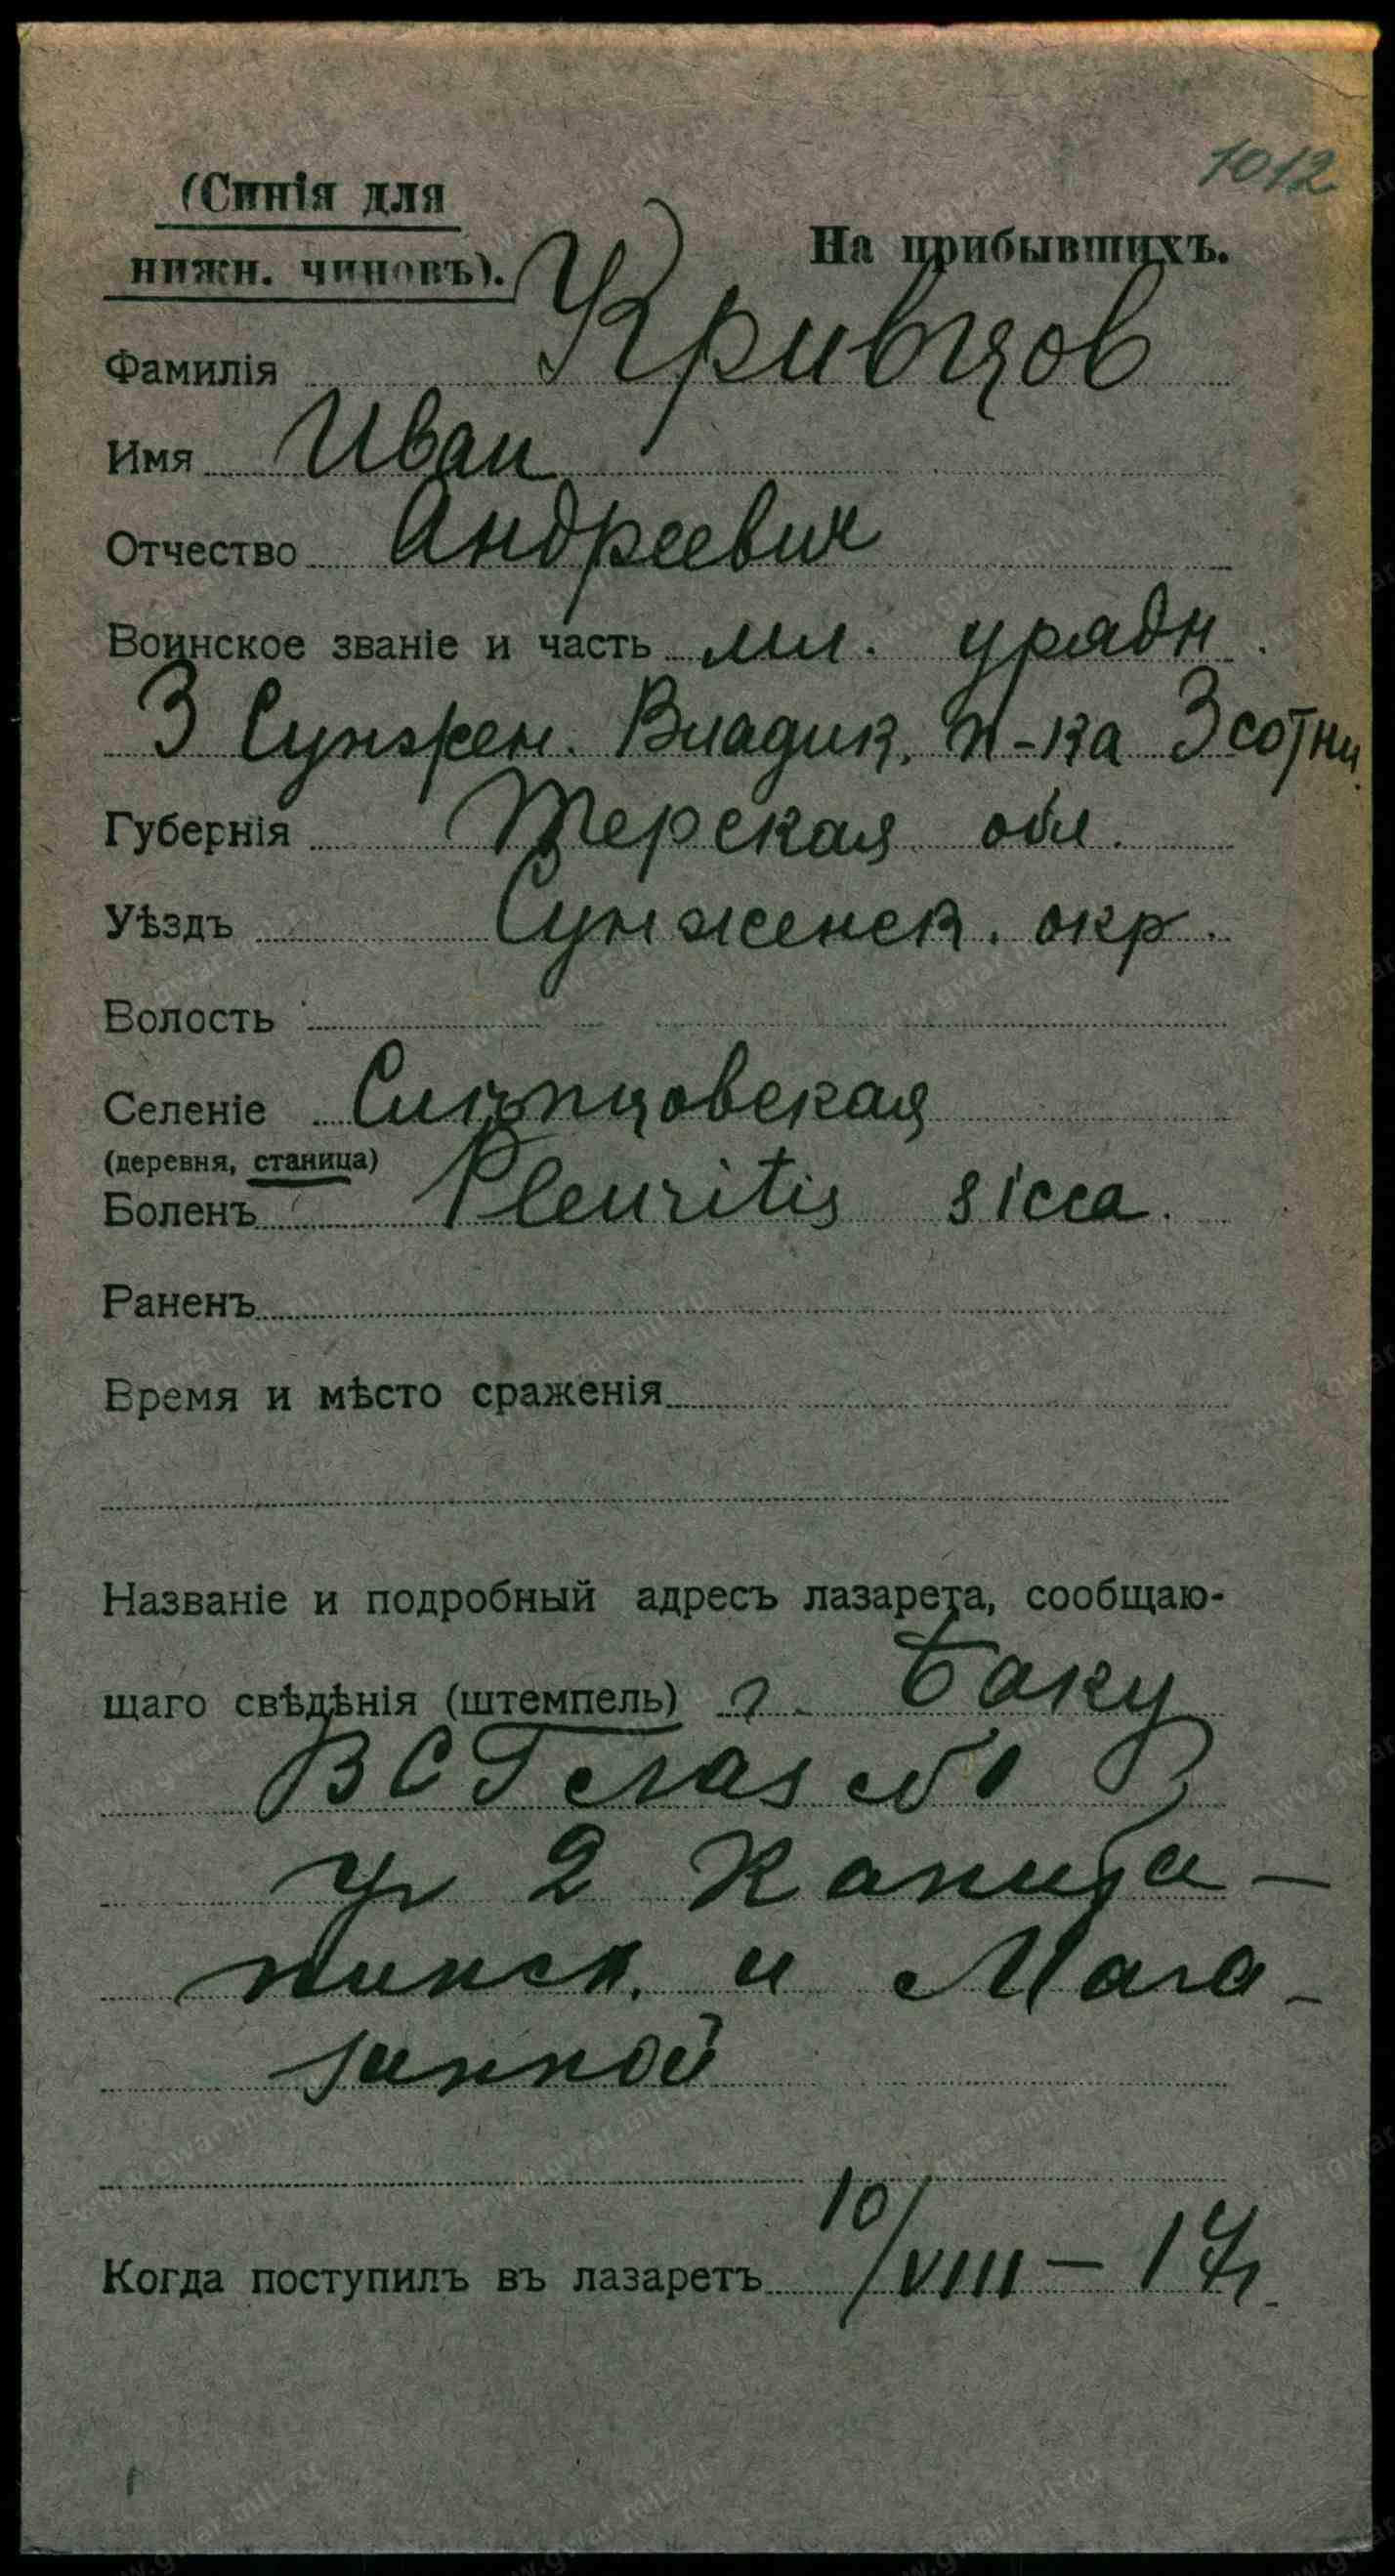 1012
(Синія для
нижн. чиновъ).
На прибывшихъ.
Фамилія Кривцов
Имя Иван
Отчество Андреевич
Воинское званіе и часть мл. урядн.
3 Сунжен. Владик. п-ка 3 сотни
Губернія Терская обл.
Уѣздъ Сунженск. окр.
Волость
Селеніе Слѣпцовская
(деревня, станица)
Боленъ Pleuritis sicca.
Раненъ
Время и мѣсто сраженія
Названіе и подробный адресъ лазарета, сообщаю-
щаго свѣдѣнія (штемпель) г. Баку
ВСГ лаз №1
уг 2 Канита-
пинск. и Мага-
зинной
Когда поступилъ въ лазаретъ 10/VIII – 17 г.